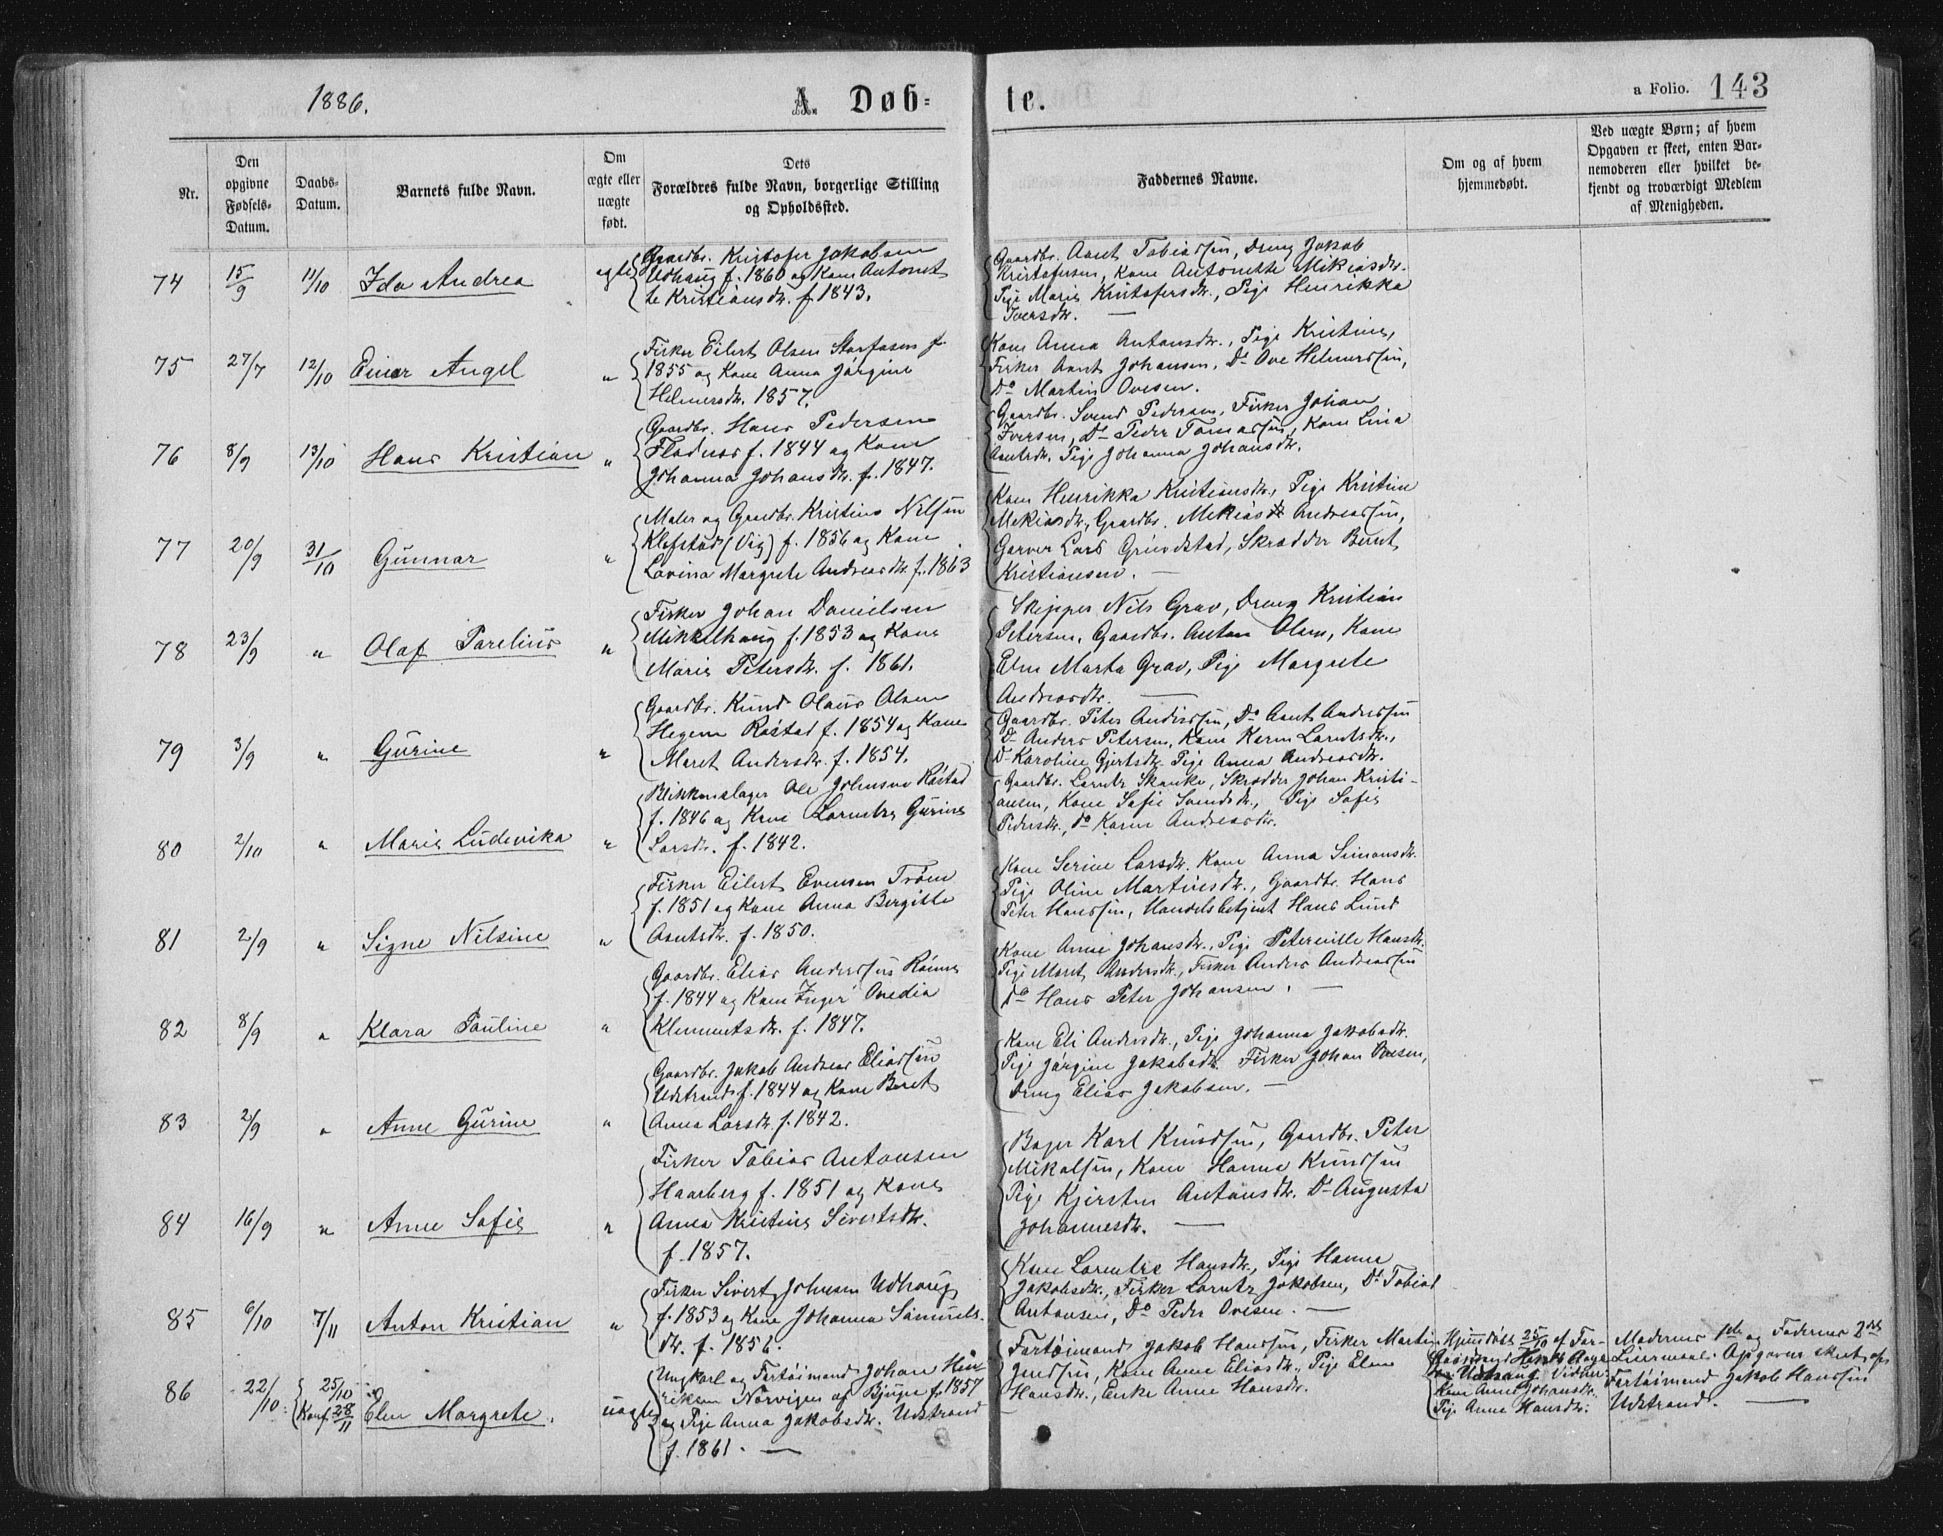 1886.
A. Døb=
te.
a Folio. 143
Nr.
Den opgivne Fødsels-Datum.
Daabs-Datum.
Barnets fulde Navn.
Om ægte eller uægte født.
Dets Forældres fulde Navn, borgerlige Stilling og Opholdssted.
Faddernes Navne.
Om og af hvem hjemmedøbt.
Ved uægte Børn; af hvem Opgaven er skeet, enten Barnemoderen eller hvilket bekjendt og troværdigt Medlem af Menigheden.
74 15/9 11/10 Ida Andrea ægte
Gaardbr. Kristofer Jakobsen
Udhaug f. 1860 og Kone Antonet
te Kristiansdtr. f. 1843.
Gaardbr. Aant Tobiassen, Dreng Jakob
Kristofersen, Kone Antonette Mikiasdtr.
Pige Marie Kristofersdtr., Pige Henrikka
Iversdtr.
75 27/7 12/10 Einar Angel "
Fisker Eilert Olsen Storfosen f.
1855 og Kone Anna Jørgine
Helmersdtr. 1857.
Kone Anna Antonsdtr., Pige Kristine,
Fisker Aant Johansen, Do Ove Helmersen,
Do Martin Ovesen.
76 8/9 13/10 Hans Kristian "
Gaardbr. Hans Pedersen
Fladnes f. 1844 og Kone
Johanna Johansdtr. f. 1847.
Gaardbr. Svend Pedersen, Fisker Johan
Iversen, Do Peder Tomassen, Kone Lina
Aantsdtr. Pige Johanna Johansdtr.
77 20/9 31/10 Gunnar "
Maler og Gaardbr. Kristius Nilsen
Klefstad (Vig) f. 1856 og Kone
Lovina Margrete Andreasdtr. f. 1863
Kone Henrikka Kristiansdtr., Pige Kristine
Mekiasdtr, Gaardbr. Mekias Andreassen,
Garver Lars Grindstad, Skrædder Bernt
Kristiansen.
78 23/9 " Olaf Parelius "
Fisker Johan Danielsen
Mikkelhaug f. 1853 og Kone
Marie Petersdtr. f. 1861.
Skipper Nils Grav, Dreng Kristian
Petersen, Gaardbr. Anton Olsen, Kone
Elen Marta Grav, Pige Margrete
Andreasdtr.
79 3/9 " Gurine "
Gaardbr. Knud Olaus Olsen
Hegem Røstad f. 1854 og Kone
Maret Andersdtr. f. 1854.
Gaardbr. Peter Anderssen, Do Aant Anderssen
Do Anders Petersen, Kone Karen Larntsdtr.,
Do Karoline Gjertsdtr. Pige Anna Andreasdtr.
80 2/10 " Marie Ludevika "
Blikkenslager Ole Johnsen Røstad
f. 1846 og Kone Lorntze Gurine
Larsdtr. f. 1842.
Gaardbr. Lorntz Skanke, Skrædder Johan Kristi-
ansen, Kone Sofie Svendsdtr., Pige Sofie
Pedersdtr., Do Karen Andreasdtr.
81 2/9 " Signe Nilsine "
Fisker Eilert Evensen Trøen
f. 1851 og Kone Anna Bergitte
Aantsdtr. f. 1850.
Kone Serine Larsdtr. Kone Anna Simonsdtr.
Pige Oline Martinsdtr., Gaardbr. Hans
Peter Hanssen, Handelsbetjent Hans Lund
82 8/9 " Klara Pauline "
Gaardbr. Elias Anderssen Rønne
f. 1844 og Kone Inger Ovedia
Klemmetsdtr. f. 1847.
Kone Anne Johansdtr., Pige Peternille Hansdtr.
Pige Maret Andersdtr., Fisker Anders Andreassen
Do Hans Peter Johansen.
83 2/9 " Anne Gurine "
Gaardbr. Jakob Andreas Eliassen
Udstrand f. 1844 og Kone Beret
Anna Larsdtr. f. 1842.
Kone Eli Andersdtr., Pige Johanna Jakobsdtr.
Pige Jørgine Jakobsdtr. Fisker Johan Ovesen,
Dreng Elias Jakobsen.
84 16/9 " Anne Sofie "
Fisker Tobias Antonsen
Haarberg f. 1851 og Kone
Anna Kristine Sivertsdtr.
f. 1857.
Bager Karl Knudsen, Gaardbr. Peter
Mikalsen, Kone Hanna Knudsen
Pige Kjersten Antonsdtr. Do Augusta
Johannesdtr.
85 6/10 7/11 Anton Kristian "
Fisker Sivert Johnsen Udhaug
f. 1853 og Kone Johanna Samuels-
dtr. f. 1856.
Kone Lorentze Hansdtr., Pige Hanna
Jakobsdtr., Fisker Lorntz Jakobsen, Do Tobias
Antonsen, Do Peder Ovesen.
86 22/10 25/10 Konf. 28/11 Elen Margrete. uægte
Ungkarl og Fartøimand Johan Hen
riksen Norvigen af Bjugn f. 1857
og Pige Anna Jakobsdtr. Udstrand
f. 1861.
Fartøimand Jakob Hanssen, Fisker Martin
Jenssen, Kone Anne Eliasdtr., Pige Elen
Hansdtr., Enke Anne Hansdtr.
Hjemdøbt 25/10 af
Udstrand. Vidner:
Kone Anne Johansdtr.
Pige Anna Hansdtr.
Moderens 1ste og Faderens 2det
Leiermaal. Opgaven skeet af
Fartøimand Jakob Hanssen
Udstrand.